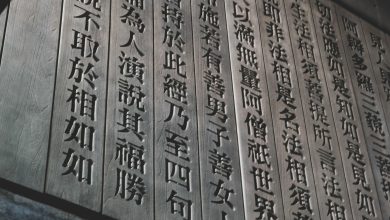 阿耨多羅三藐三
切法應如是知如是見如
法相須菩提所言法相
即非法相是名法相須
以滿無量阿僧祇世界
施若有善男子善女
持於此經乃至四句
誦為人演說其福勝
說不取於相如如